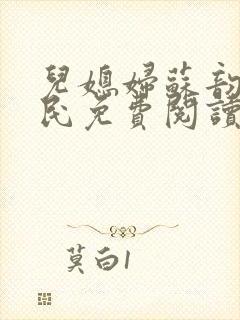 兒媳婦蘇韵
民免費閱讀
莫白1